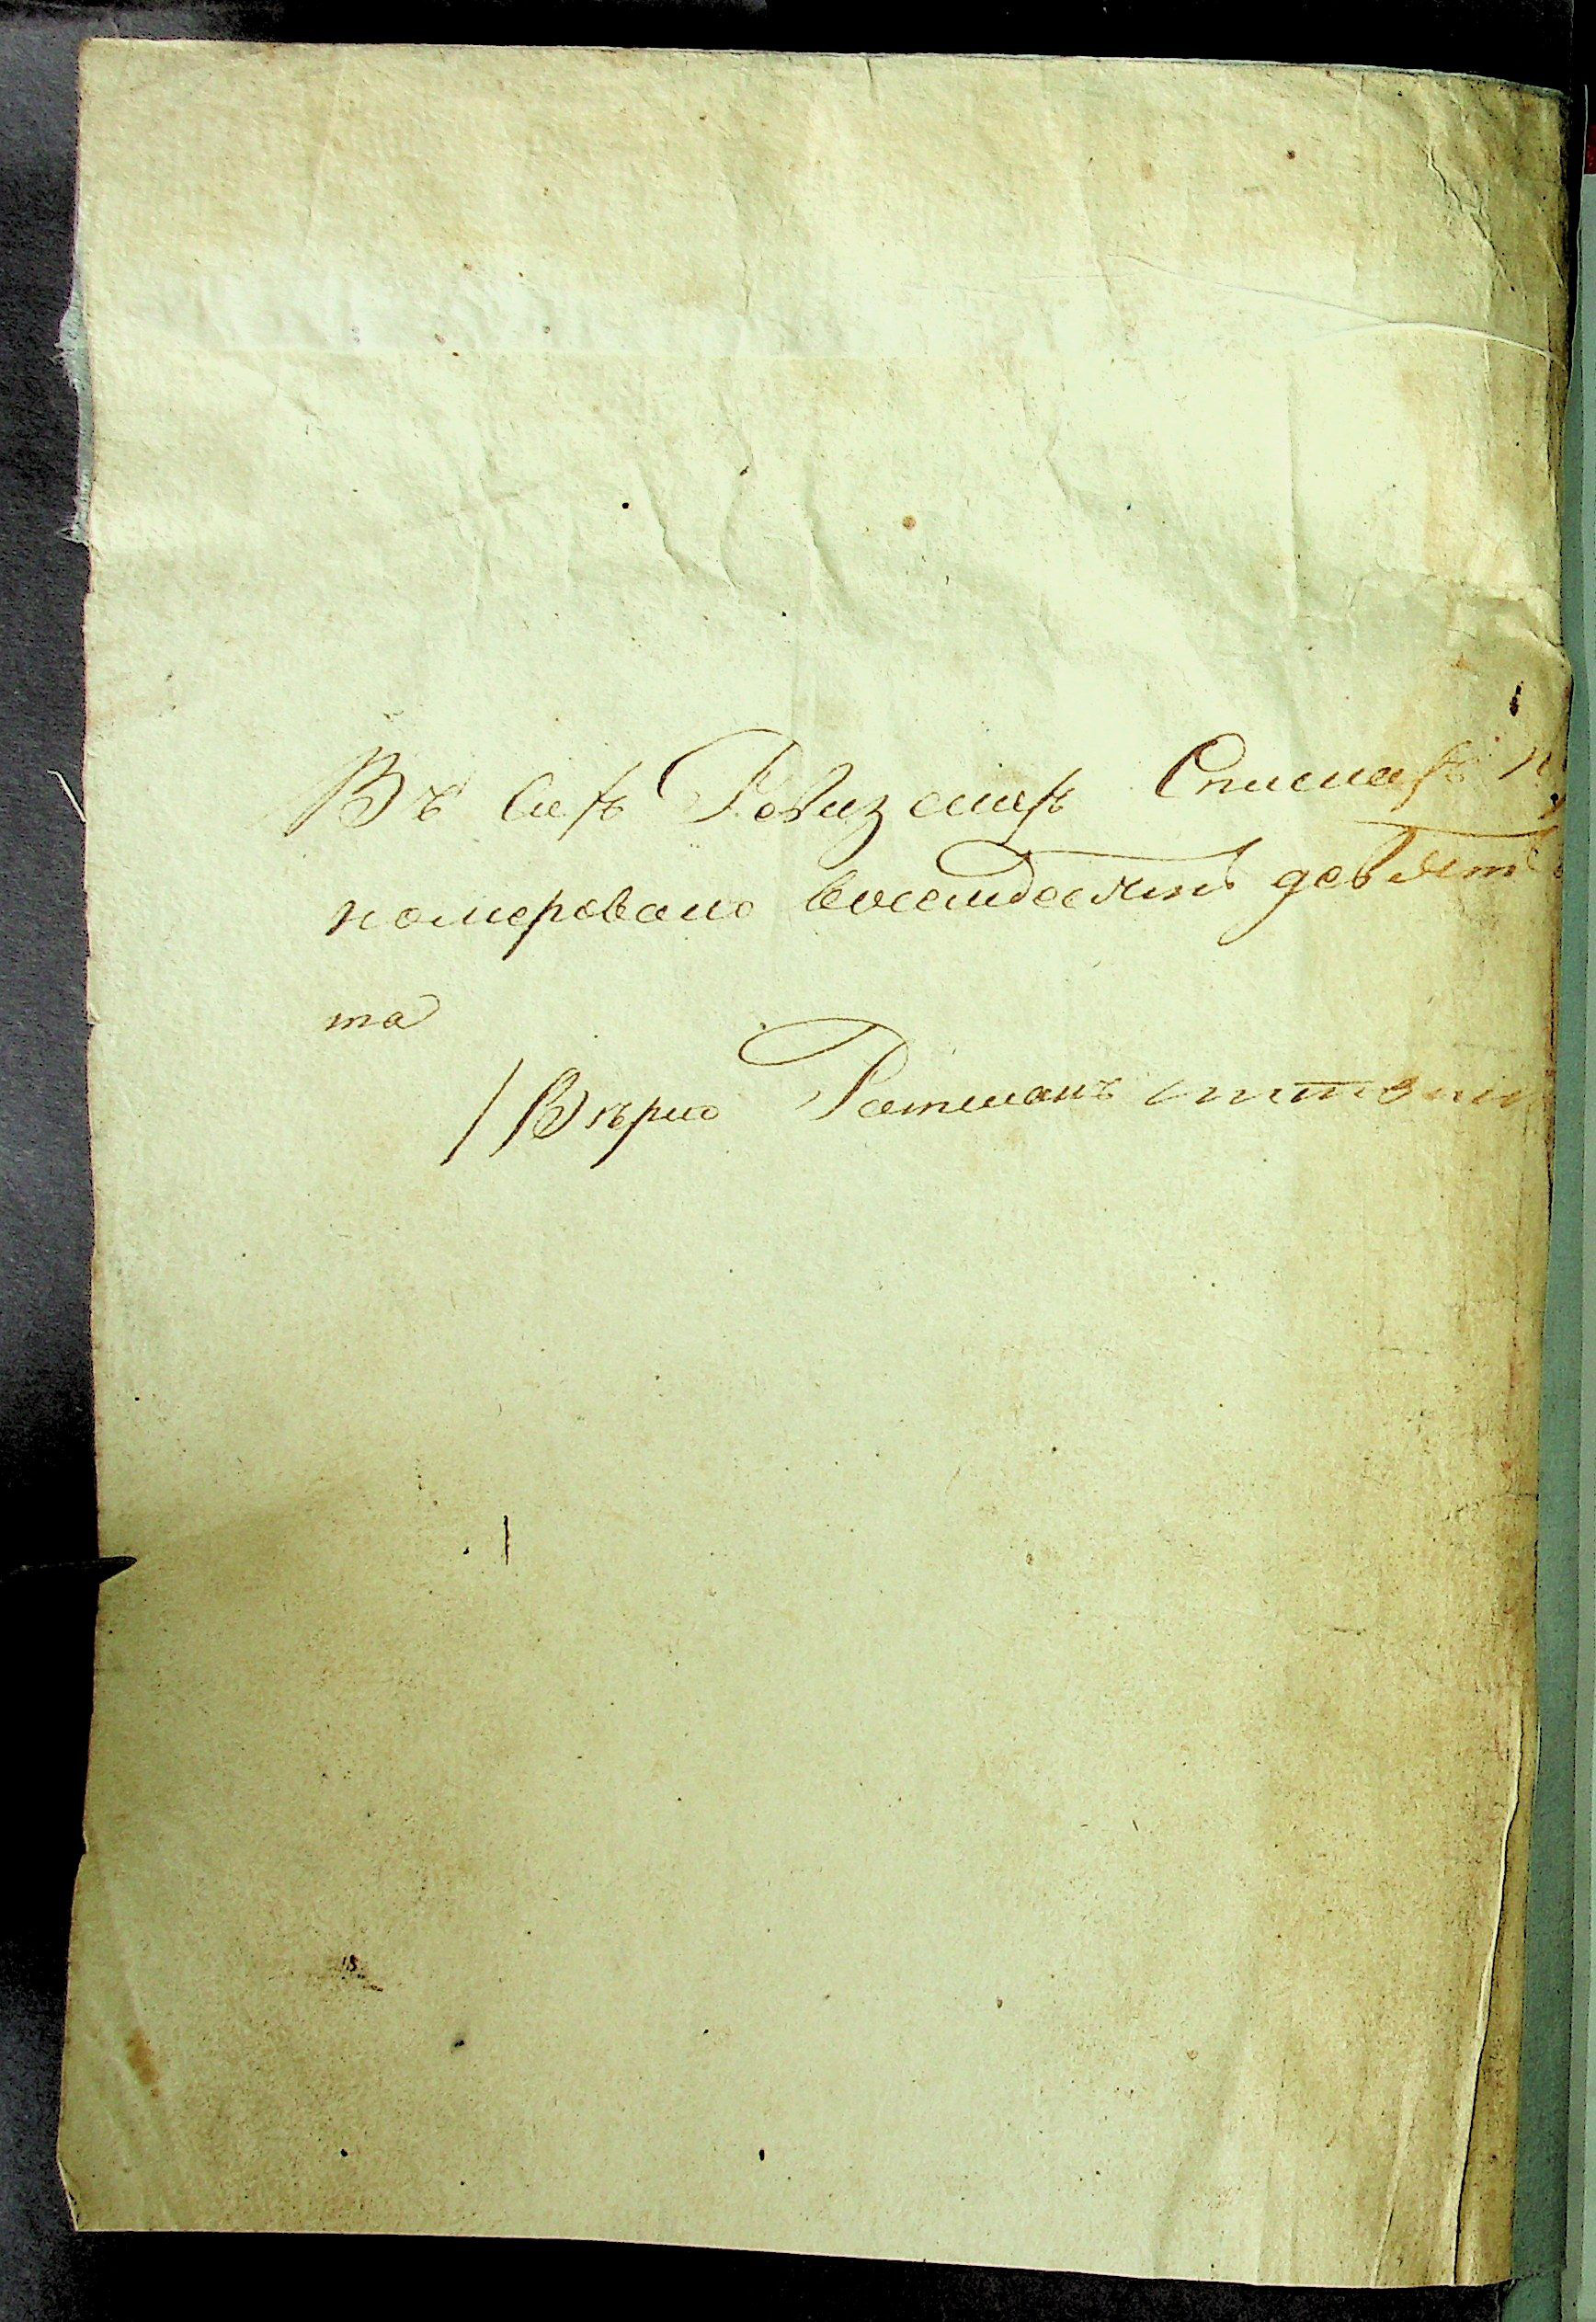 Въ сихъ Ревизскихъ Спискахъ
номеровано восемдесятъ девять
та
Вѣрно Ратманъ